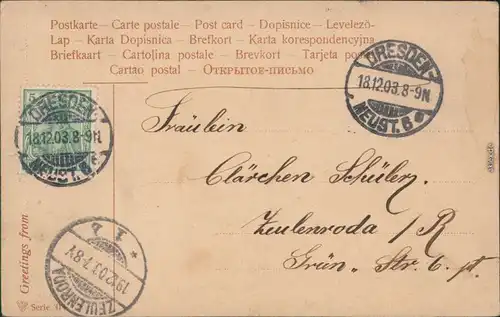 Postkarte - Carte postale - Post card - Dopisnice - Levelezö-
Lap - Karta Dopisnica - Brefkort - Karta korespondencyjna
Briefkaart - Cartolina postale - Brevkort - Tarjeta postal
Cartao postal - ОТКРЫТОЕ-ПИСЬМО
DRESDEN-
18.12.03.8-9N.
NEUST. 6
DRESDEN-
18.12.03.8-9N.
NEUST. 6
Fräulein
Clärchen Schüler
Zeulenroda / R
Grün - Str. 6. pt.
ZEULENRODA
19.12.03.7-8V
* 1 b
Greetings from
Serie